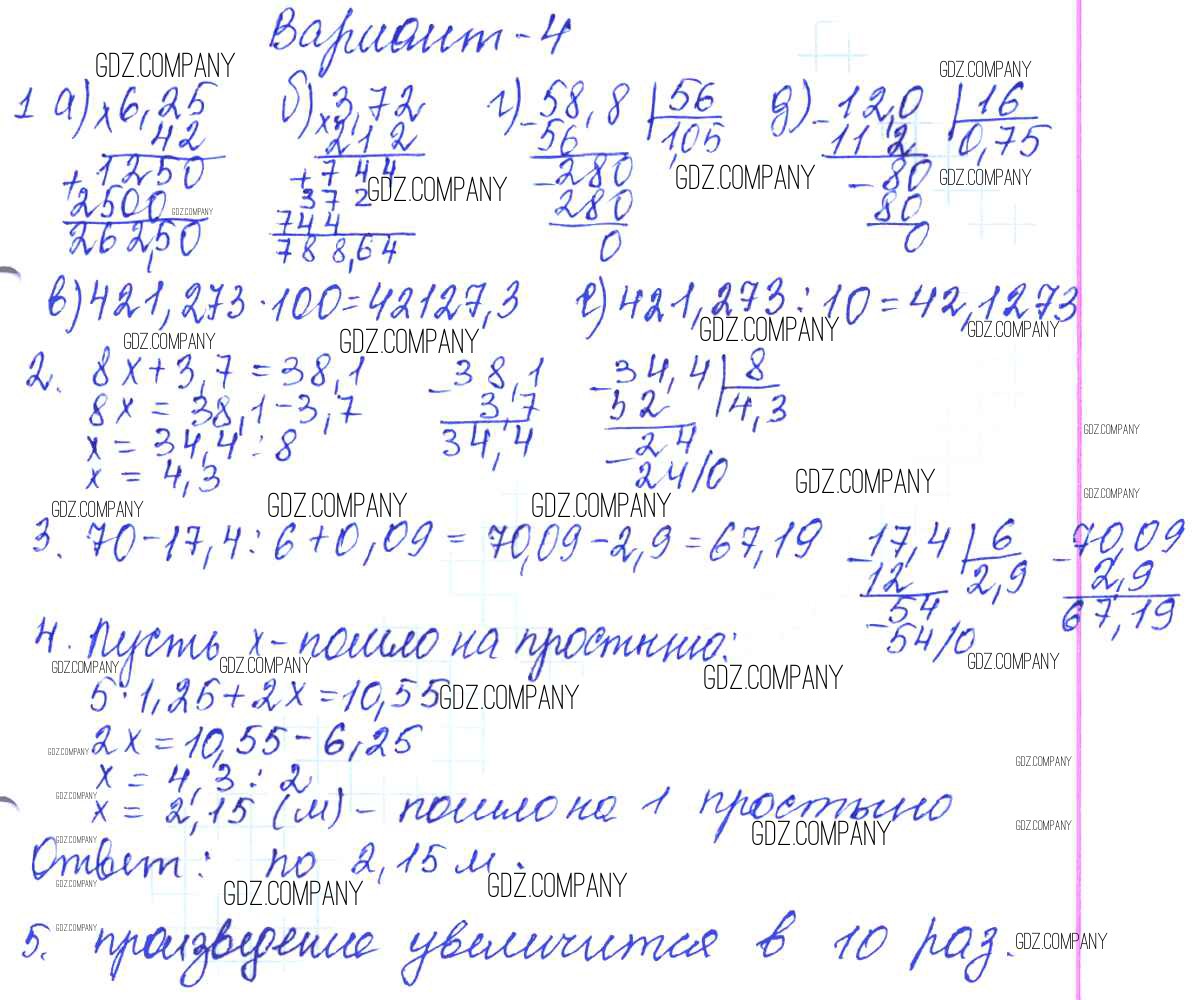 Вариант-4
1 а) ×6,25 б) ×3,72 г) -58,8 |56 д) -12,0 |16
42 212 56 1,05 11 2 0,75
+1250 +744 -280 -80
2500 372 280 80
262,50 744 0 0
788,64
в) 421,273 · 100 = 42127,3 е) 421,273 : 10 = 42,1273
2. 8x + 3,7 = 38,1 -38,1 -34,4 |8
8x = 38,1 - 3,7 3,7 32 4,3
x = 34,4 : 8 34,4 -24
x = 4,3 24/0
3. 70 - 17,4 : 6 + 0,09 = 70,09 - 2,9 = 67,19 -17,4 |6 -70,09
12 2,9 2,9
-54 67,19
54/0
4. Пусть x - пошло на простыню:
5 · 1,25 + 2x = 10,55
2x = 10,55 - 6,25
x = 4,3 : 2
x = 2,15 (м) - пошло на 1 простыню
Ответ: по 2,15 м.
5. произведение увеличится в 10 раз.
GDZ.COMPANY